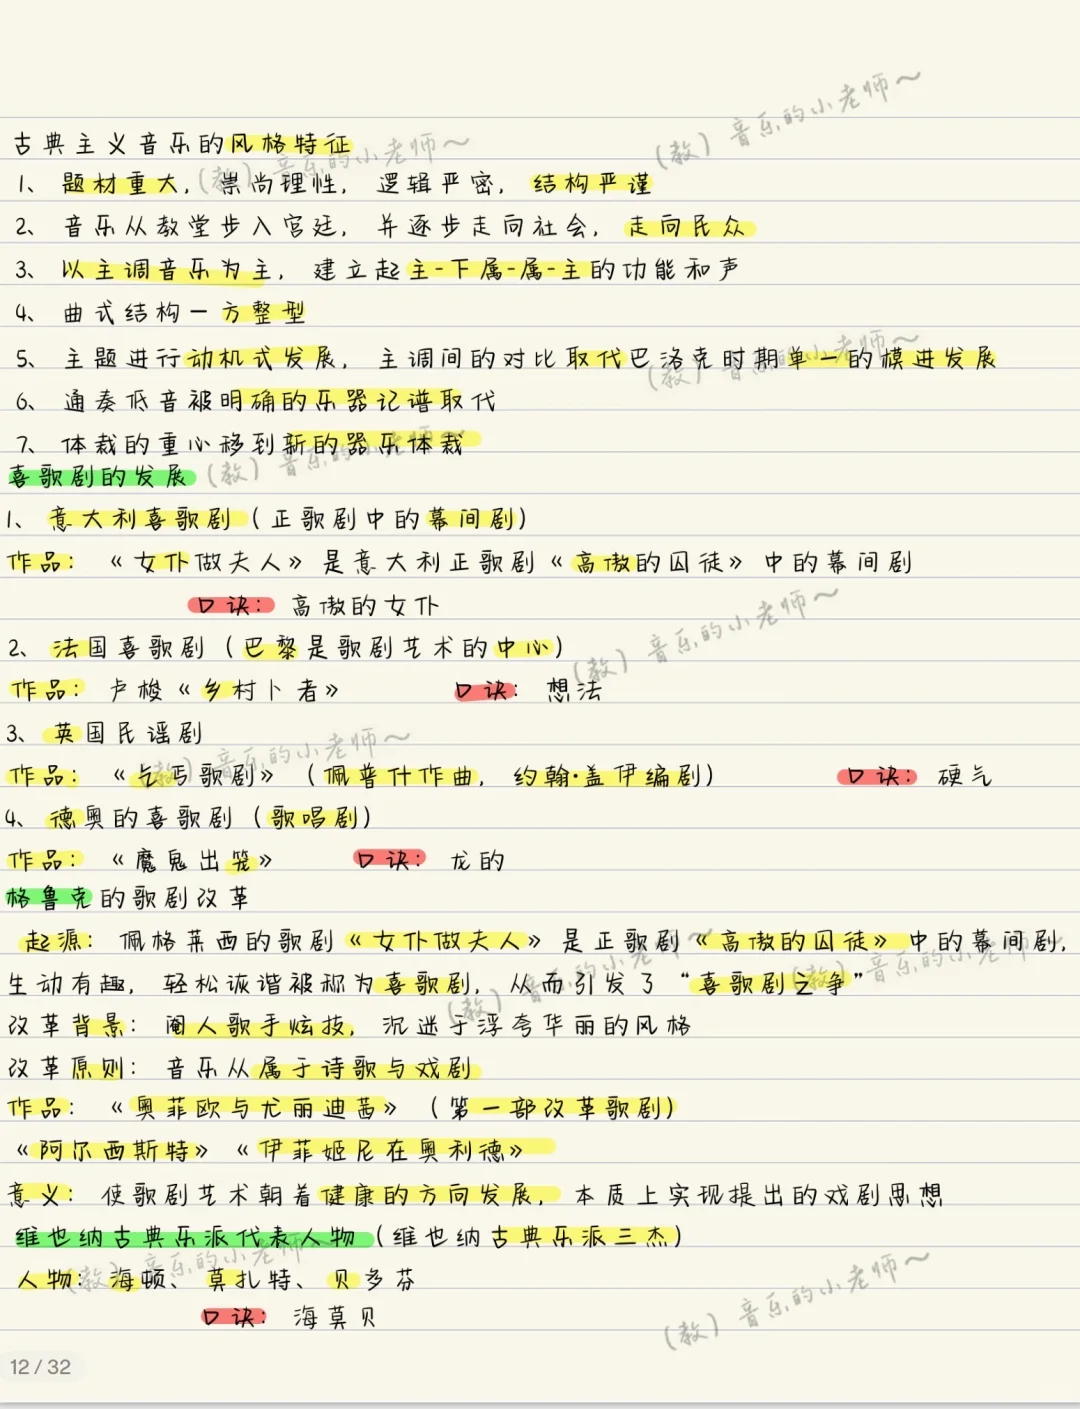 古典主义音乐的风格特征
1、题材重大,崇尚理性,逻辑严密,结构严谨
2、音乐从教堂步入宫廷,并逐步走向社会,走向民众
3、以主调音乐为主,建立起主-下属-属-主的功能和声
4、曲式结构一方整型
5、主题进行动机式发展,主调间的对比取代巴洛克时期单一的模进发展
6、通奏低音被明确的乐器记谱取代
7、体裁的重心移到新的器乐体裁
喜歌剧的发展
1、意大利喜歌剧(正歌剧中的幕间剧)
作品:《女仆做夫人》是意大利正歌剧《高傲的囚徒》中的幕间剧
口诀:高傲的女仆
2、法国喜歌剧(巴黎是歌剧艺术的中心)
作品:卢梭《乡村卜者》 口诀:想法
3、英国民谣剧
作品:《乞丐歌剧》(佩普什作曲,约翰·盖伊编剧) 口诀:硬气
4、德奥的喜歌剧(歌唱剧)
作品:《魔鬼出笼》 口诀:龙的
格鲁克的歌剧改革
起源:佩格莱西的歌剧《女仆做夫人》是正歌剧《高傲的囚徒》中的幕间剧,
生动有趣,轻松诙谐被称为喜歌剧,从而引发了“喜歌剧之争”
改革背景:阉人歌手炫技,沉迷于浮夸华丽的风格
改革原则:音乐从属于诗歌与戏剧
作品:《奥菲欧与尤丽迪茜》(第一部改革歌剧)
《阿尔西斯特》《伊菲姬尼在奥利德》
意义:使歌剧艺术朝着健康的方向发展,本质上实现提出的戏剧思想
维也纳古典乐派代表人物(维也纳古典乐派三杰)
人物:海顿、莫扎特、贝多芬
口诀:海莫贝
12/32
(教)音乐的小老师~
(教)音乐的小老师~
(教)音乐的小老师~
(教)音乐的小老师~
(教)音乐的小老师~
(教)音乐的小老师~
(教)音乐的小老师~
(教)音乐的小老师~
(教)音乐的小老师~
(教)音乐的小老师~